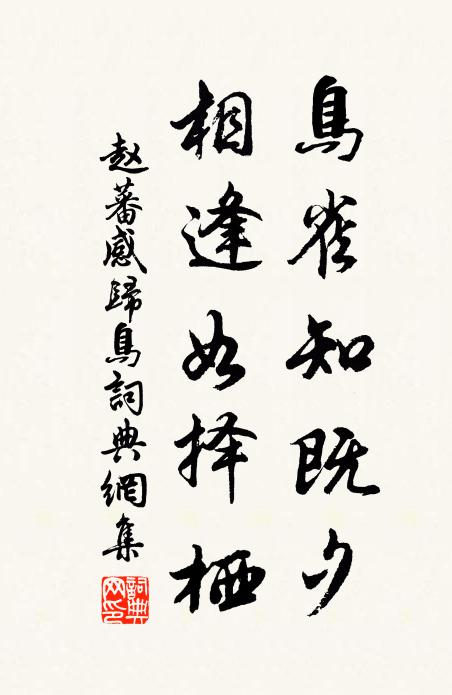 鳥雀知既夕
相逢如择栖
赵蕃感歸鳥詞典網集
詞典网印